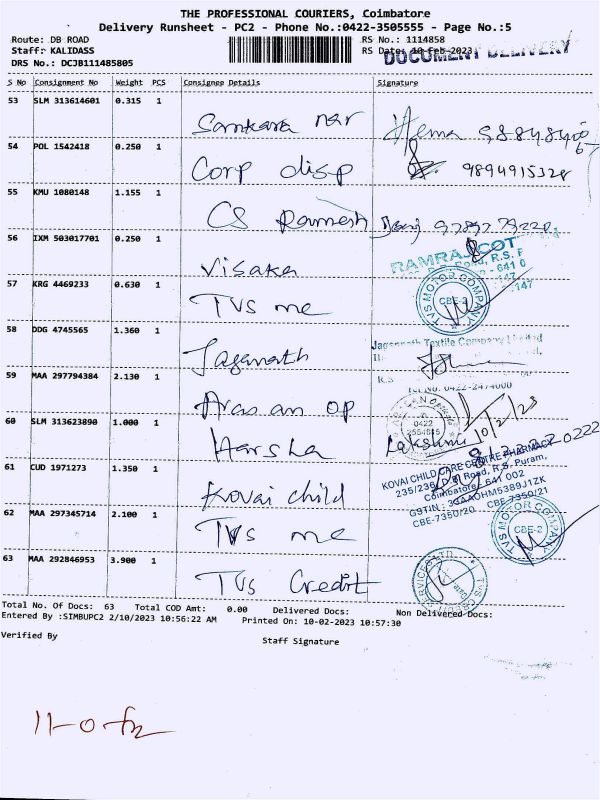 THE PROFESSIONAL COURIERS, Coimbatore
Delivery Runsheet - PC2 - Phone No.:0422-3505555 - Page No.:5
Route: DB ROAD
RS No.: 1114858
Staff: KALIDASS
RS Date: 10-Feb-2023
DOCUMENT DELIVERY
DRS No.: DCJB111485805
S No Consignment No Weight PCS Consignee Details Signature
53 SLM 313614601 0.315 1
Sankara nar Hema
54 POL 1542418 0.250 1
Corp disp 9894915328
55 KMU 1080148 1.155 1
CS Ramesh
56 IXM 503017701 0.250 1
Visaka
RAMRAJ COT
57 KRG 4469233 0.630 1
TVS me
TVS MOTOR COMPANY
CBE-2
58 DDG 4745565 1.360 1
Jaganath
Jagannath Textile Company Limited
59 MAA 297794384 2.130 1
Tel No. 0422-2474000
Aras an op
60 SLM 313623890 1.000 1
Harsha Lakshmi 10/2/23
61 CUD 1971273 1.350 1
Kovai child
KOVAI CHILD CARE CENTRE PHARMACY
235/236, D.B. Road, R.S. Puram,
Coimbatore - 641 002
CBE-7350/20 CBE-7350/21
62 MAA 297345714 2.100 1
TVS me
TVS MOTOR COMPANY
CBE-2
63 MAA 292846953 3.900 1
TVS Credit
Total No. Of Docs: 63 Total COD Amt: 0.00 Delivered Docs: Non Delivered Docs:
Entered By :SIMBUPC2 2/10/2023 10:56:22 AM Printed On: 10-02-2023 10:57:30
Verified By
Staff Signature